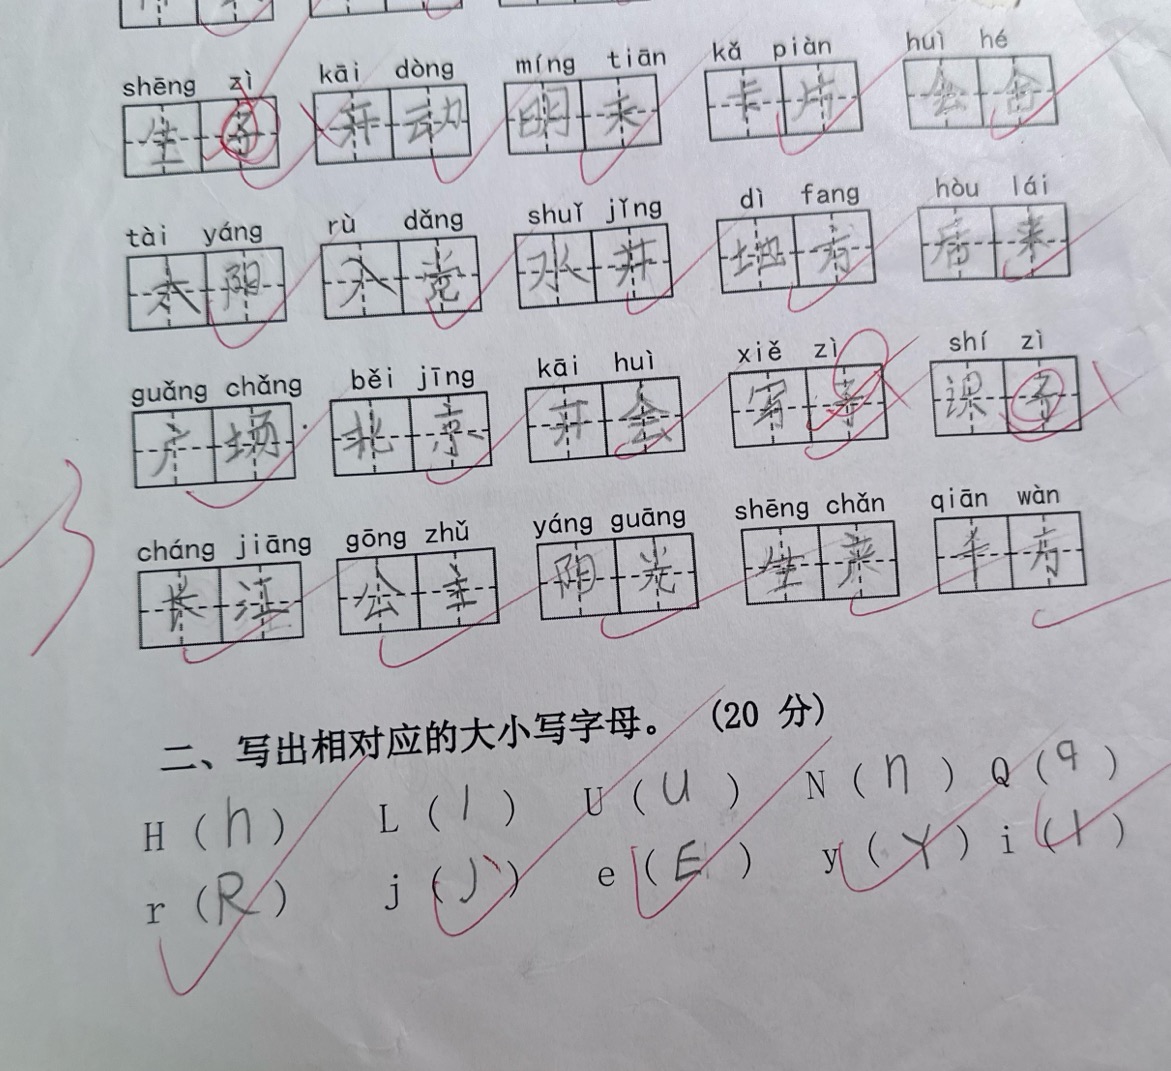 shēng zì kāi dòng míng tiān kǎ piàn huì hé
生 开动 明天 卡片 会合
tài yáng rù dǎng shuǐ jǐng dì fang hòu lái
太阳 入党 水井 地方 后来
guǎng chǎng běi jīng kāi huì xiě zì shí zì
广场 北京 开会 写 识
cháng jiāng gōng zhǔ yáng guāng shēng chǎn qiān wàn
长江 公主 阳光 生产 千万
3
二、写出相对应的大小写字母。 (20 分)
H (h) L (l) U (u) N (n) Q (q)
r (R) j (J) e (E) y (Y) i (I)